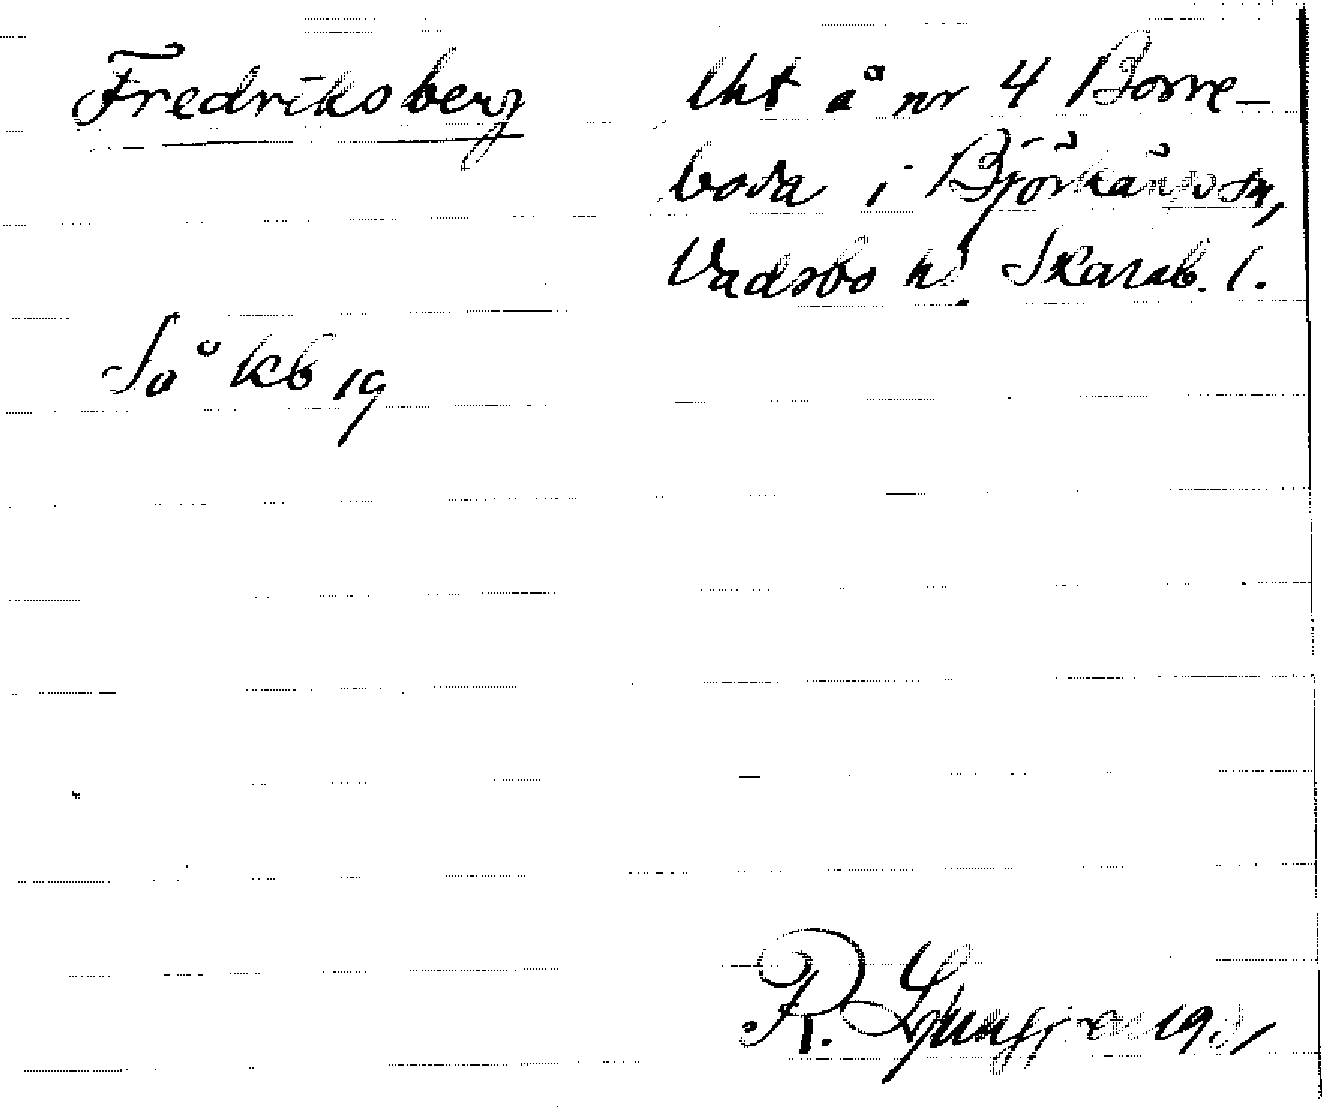 Fredriksberg
Uht å nr 4 Borre-
boda i Björkängs sn,
Vadsbo hd Skarab. l.
Så kb 19
R. Ljunggren